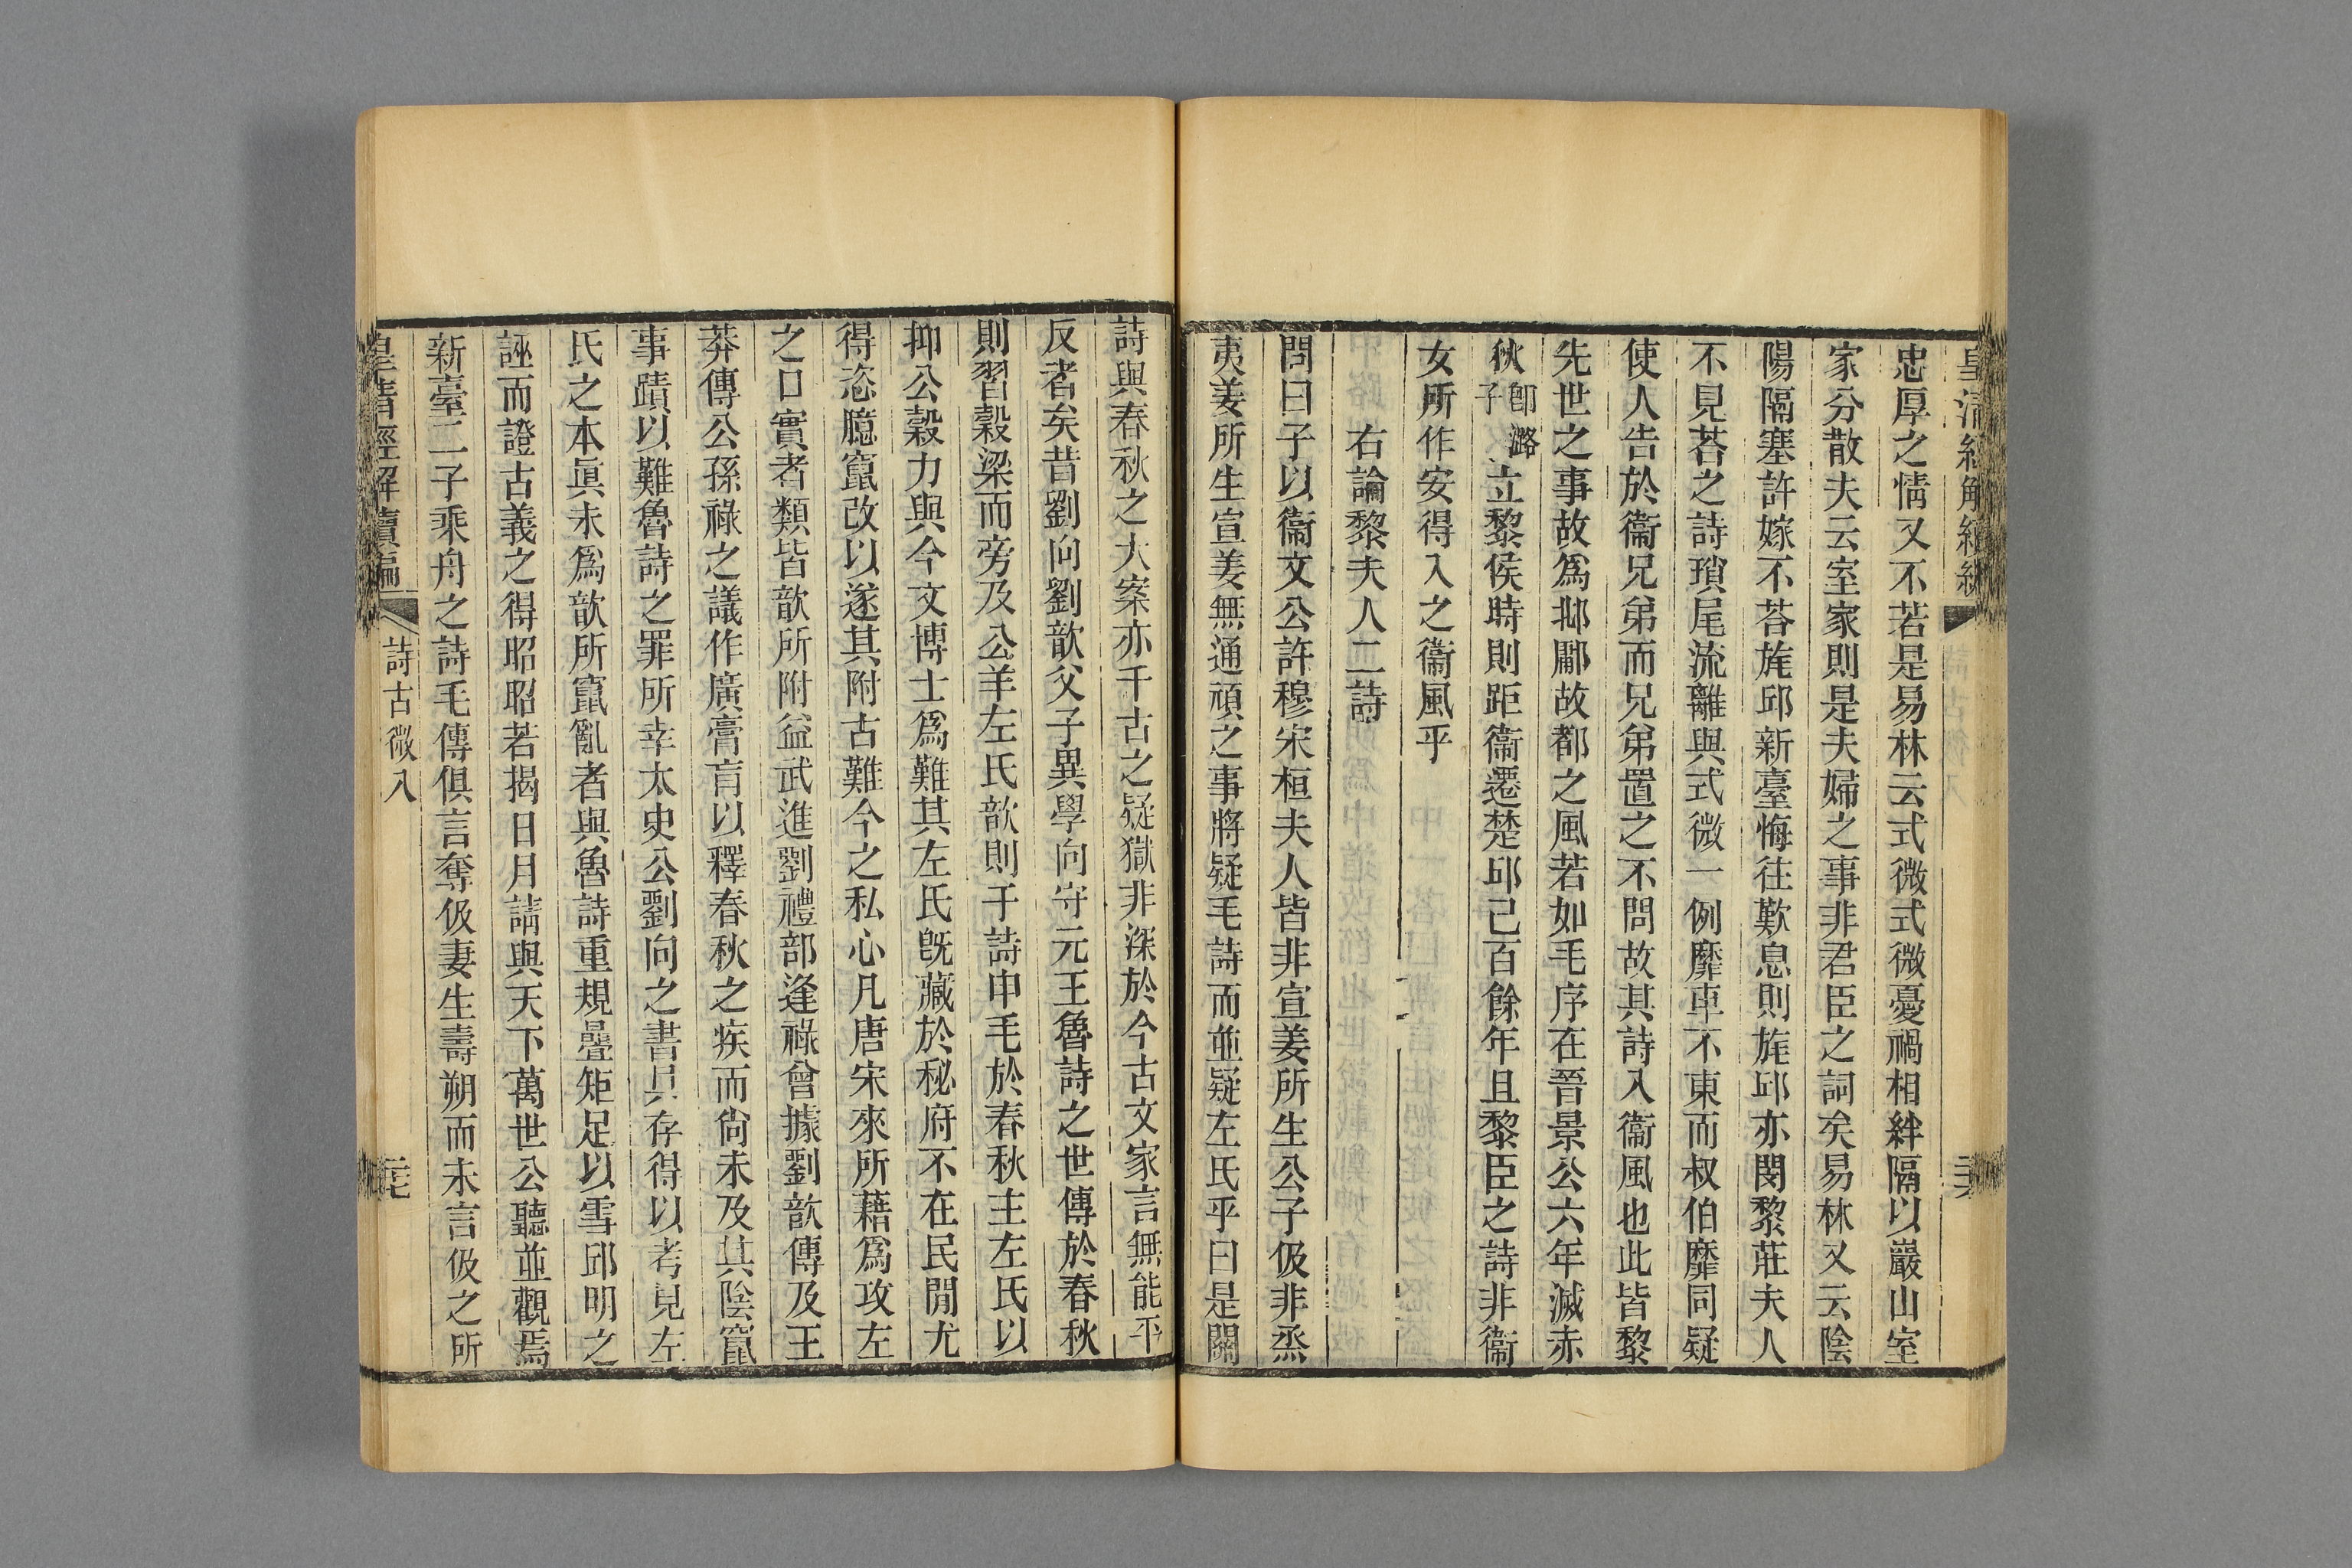 皇清經解續編
忠厚之情又不若是易林云式微式微憂禍相絆隔以巖山室
家分散夫云室家則是夫婦之事非君臣之詞矣易林又云陰
陽隔塞許嫁不荅旄邱新臺悔往歎息則旄邱亦閔黎莊夫人
不見荅之詩瑣尾流離與式微一例靡車不東而叔伯靡同疑
使人告於衞兄弟而兄弟置之不問故其詩入衞風也此皆黎
先世之事故爲邶鄘故都之風若如毛序在晉景公六年滅赤
狄卽潞子立黎侯時則距衞遷楚邱已百餘年且黎臣之詩非衞
女所作安得入之衞風乎
右論黎夫人二詩
問曰子以衞文公許穆宋桓夫人皆非宣姜所生公子伋非烝
夷姜所生宣姜無通頑之事將疑毛詩而並疑左氏乎曰是關
詩與春秋之大案亦千古之疑獄非深於今古文家言無能平
反者矣昔劉向劉歆父子異學向守元王魯詩之世傳於春秋
則習穀梁而旁及公羊左氏歆則于詩申毛於春秋主左氏以
抑公穀力與今文博士爲難其左氏旣藏於秘府不在民閒尤
得恣臆竄改以遂其附古難今之私心凡唐宋來所藉爲攻左
之口實者類皆歆所附益武進劉禮部逢祿曾據劉歆傳及王
莽傳公孫祿之議作廣膏肓以釋春秋之疾而尙未及其陰竄
事蹟以難魯詩之罪所幸太史公劉向之書具存得以考見左
氏之本眞未爲歆所竄亂者與魯詩重規疊矩足以雪邱明之
誣而證古義之得昭昭若揭日月請與天下萬世公聽並觀焉
新臺二子乘舟之詩毛傳俱言奪伋妻生壽朔而未言伋之所
皇清經解續編
詩古微八